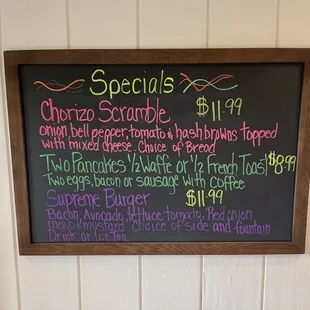 Specials
Chorizo Scramble $11.99
onion, bell pepper, tomato & hashbrowns topped
with mixed cheese. Choice of Bread
Two Pancakes 1/2 Waffe or 1/2 French Toast $8.99
Two eggs, bacon or sausage with Coffee
Supreme Burger $11.99
Bacon, Avocado, lettuce tomato, Red onion
mayo & mustard Choice of side and fountain
Drink or Ice-Tea